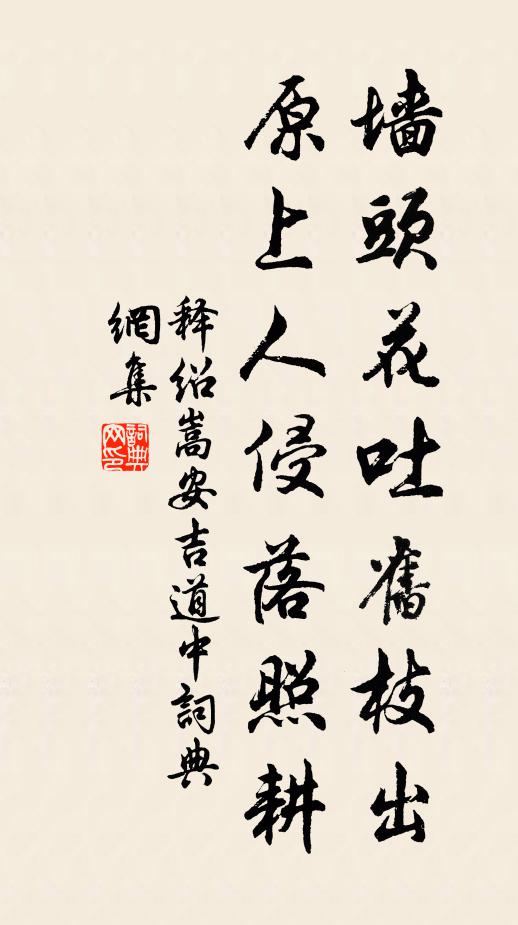 墙頭花吐舊枝出
原上人侵落照耕
释紹嵩安吉道中詞典
網集
詞典网印